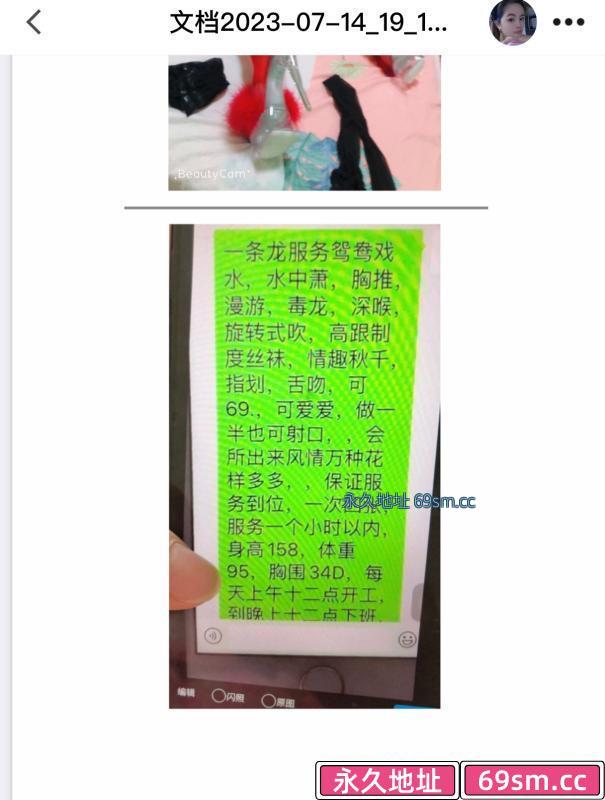 文档2023-07-14_19_1...
BeautyCam
一条龙服务鸳鸯戏
水，水中萧，胸推，
漫游，毒龙，深喉，
旋转式吹，高跟制
度丝袜，情趣秋千，
指划，舌吻，可
69.，可爱爱，做一
半也可射口，，会
所出来风情万种花
样多多，，保证服
务到位，一次
永久地址 69sm.cc
服务一个小时以内，
身高158，体重
95，胸围34D，每
天上午十二点开工，
到晚上十二点下班，
编辑
闪照
原图
永久地址 69sm.cc